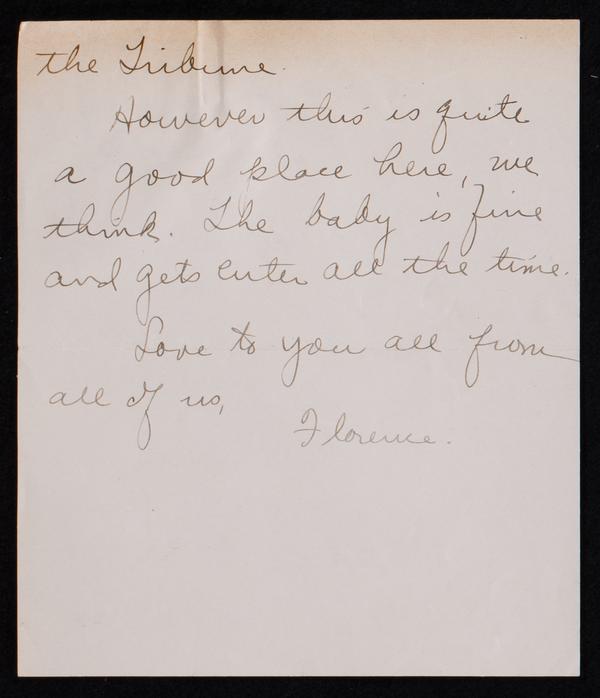 the Tribune.
However this is quite
a good place here, we
think. The baby is fine
and gets cuter all the time.
Love to you all from
all of us,
Florence.